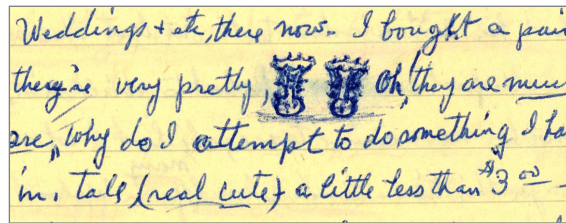 Weddings + etc, there now. I bought a pair
they're very pretty, Oh, they are much
are, "Why do I attempt to do something I ha
in. tall (real cute) a little less than $3.00 -